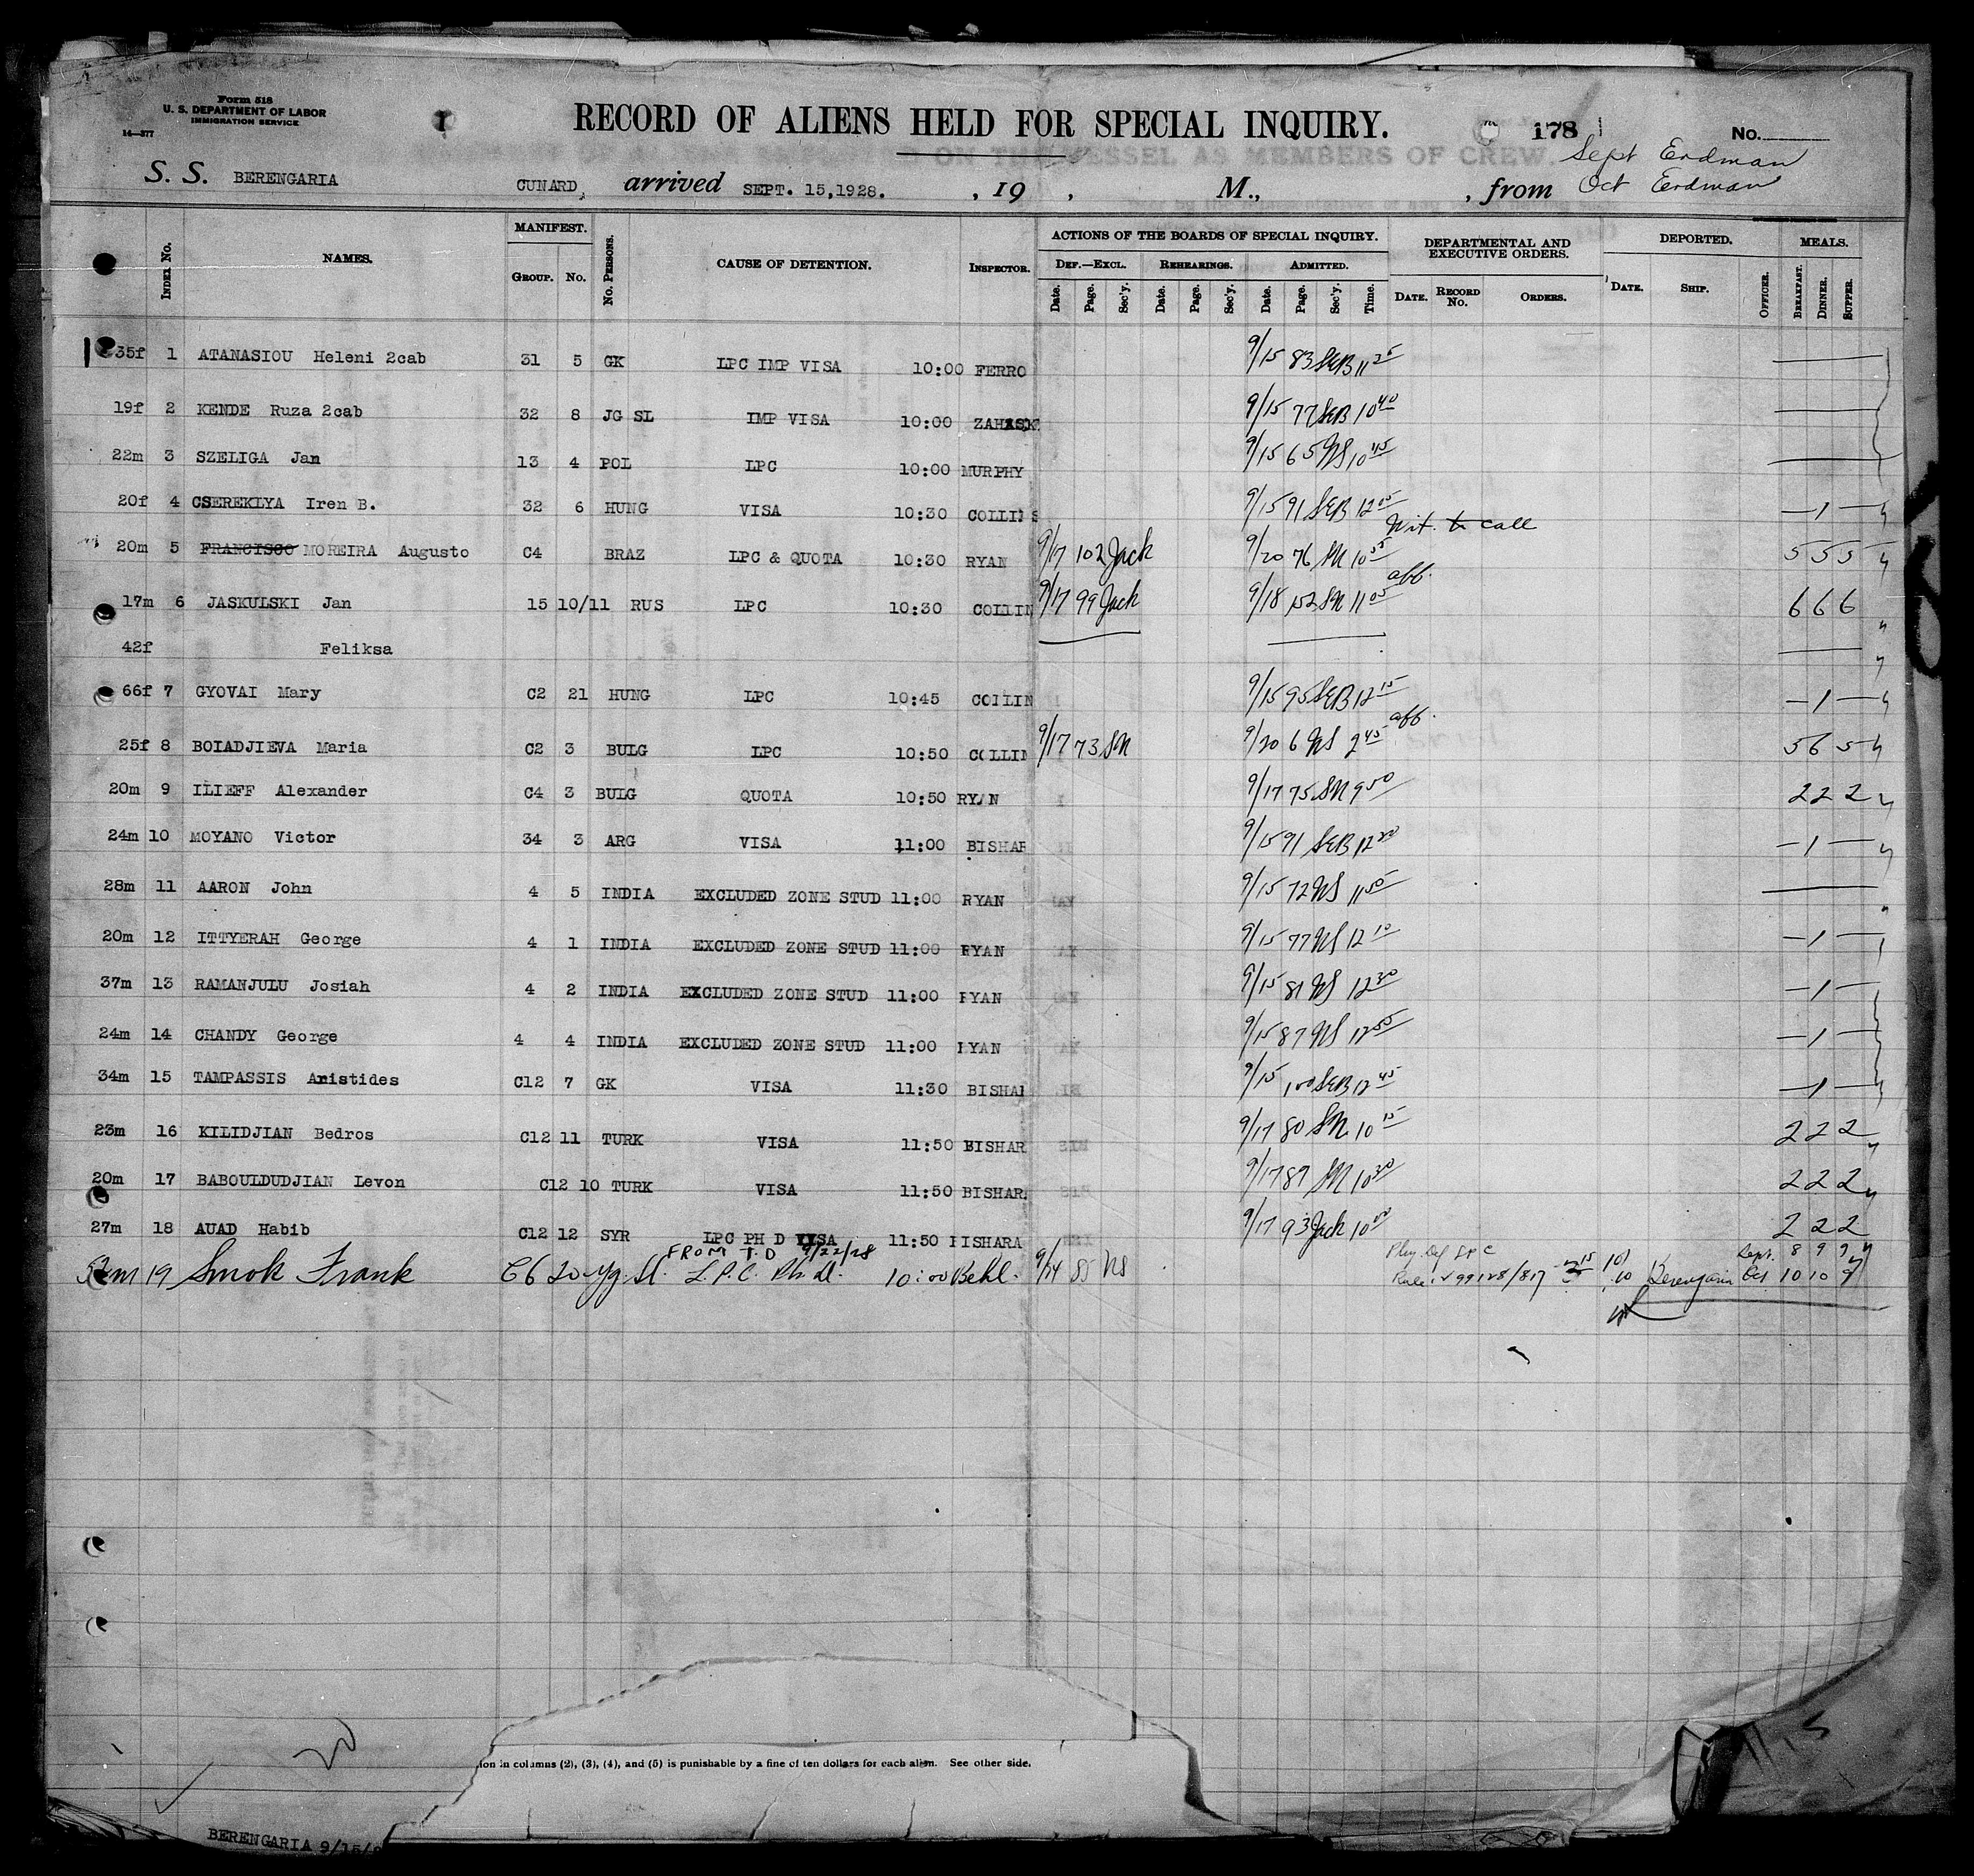 Form 518
U. S. DEPARTMENT OF LABOR
IMMIGRATION SERVICE
14—377
RECORD OF ALIENS HELD FOR SPECIAL INQUIRY.
178
No.
Sept Erdman
S. S. BERENGARIA CUNARD, arrived SEPT. 15,1928. , 19 , M., , from Oct Erdman
INDEX No. NAMES. MANIFEST. GROUP. No. No. PERSONS. CAUSE OF DETENTION. INSPECTOR. ACTIONS OF THE BOARDS OF SPECIAL INQUIRY. DEF.—EXCL. Date. Page. Sec'y. REHEARINGS. Date. Page. Sec'y. ADMITTED. Date. Page. Sec'y. Time. DEPARTMENTAL AND EXECUTIVE ORDERS. DATE. RECORD No. ORDERS. DEPORTED. DATE. SHIP. OFFICER. MEALS. BREAKFAST. DINNER. SUPPER.
35f 1 ATANASIOU Heleni 2cab 31 5 GK LPC IMP VISA 10:00 FERRO 9/15 83 SEB 11 25
19f 2 KENDE Ruza 2cab 32 8 JG SL IMP VISA 10:00 9/15 77 SEB 10 40
22m 3 SZELIGA Jan 13 4 POL LPC 10:00 MURPHY 9/15 65 NS 10 45
20f 4 CSEREKLYA Iren B. 32 6 HUNG VISA 10:30 COLLINS 9/15 91 SEB 12 05 — 1 —
Wit. to call
20m 5 FRANCISCO MOREIRA Augusto C4 BRAZ LPC & QUOTA 10:30 RYAN 9/17 102 Jack 9/20 76 SN 10 55 5 5 5
aff.
17m 6 JASKULSKI Jan 15 10/11 RUS LPC 10:30 COLLIN 9/17 99 Jack 9/18 152 SN 11 05 6 6 6
42f Feliksa
66f 7 GYOVAI Mary C2 21 HUNG LPC 10:45 COLLIN 9/15 95 SEB 12 15 — 1 —
aff.
25f 8 BOIADJIEVA Maria C2 3 BULG LPC 10:50 COLLIN 9/17 73 SN 9/20 6 NS 2 45 5 6 5
20m 9 ILIEFF Alexander C4 3 BULG QUOTA 10:50 RYAN 9/17 75 SN 9 50 2 2 2
24m 10 MOYANO Victor 34 3 ARG VISA 11:00 BISHAR 9/15 91 SEB 12 20 — 1 —
28m 11 AARON John 4 5 INDIA EXCLUDED ZONE STUD 11:00 RYAN 9/15 72 NS 11 50
20m 12 ITTYERAH George 4 1 INDIA EXCLUDED ZONE STUD 11:00 RYAN 9/15 77 NS 12 10 — 1 —
37m 13 RAMANJULU Josiah 4 2 INDIA EXCLUDED ZONE STUD 11:00 RYAN 9/15 81 NS 12 30 — 1 —
24m 14 CHANDY George 4 4 INDIA EXCLUDED ZONE STUD 11:00 RYAN 9/15 87 NS 12 55 — 1 —
34m 15 TAMPASSIS Aristides C12 7 GK VISA 11:30 BISHAR 9/15 100 SEB 12 45 — 1 —
23m 16 KILIDJIAN Bedros C12 11 TURK VISA 11:50 BISHAR 9/17 80 SN 10 15 2 2 2
20m 17 BABOULDUDJIAN Levon C12 10 TURK VISA 11:50 BISHARA 9/17 87 SN 10 30 2 2 2
27m 18 AUAD Habib C12 12 SYR LPC PH D VISA 11:50 BISHARA 9/17 93 Jack 10 00 2 2 2
FROM T.D 9/22/28 Phy. Def LPC Sept. 8 9 9
52m 19 Smok Frank C6 20 Yg. Sl. L.P.C. Ph. D. 10:00 Behl. 9/24 85 NS 99128/817 10/10 Berengaria Oct 10 10 9
ion in columns (2), (3), (4), and (5) is punishable by a fine of ten dollars for each alien. See other side.
BERENGARIA 9/15/